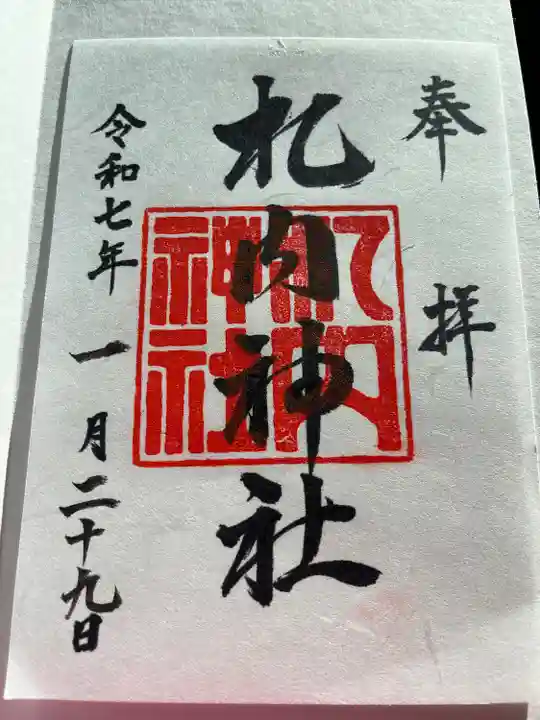 奉拝
札内神社
札内神社
令和七年一月二十九日